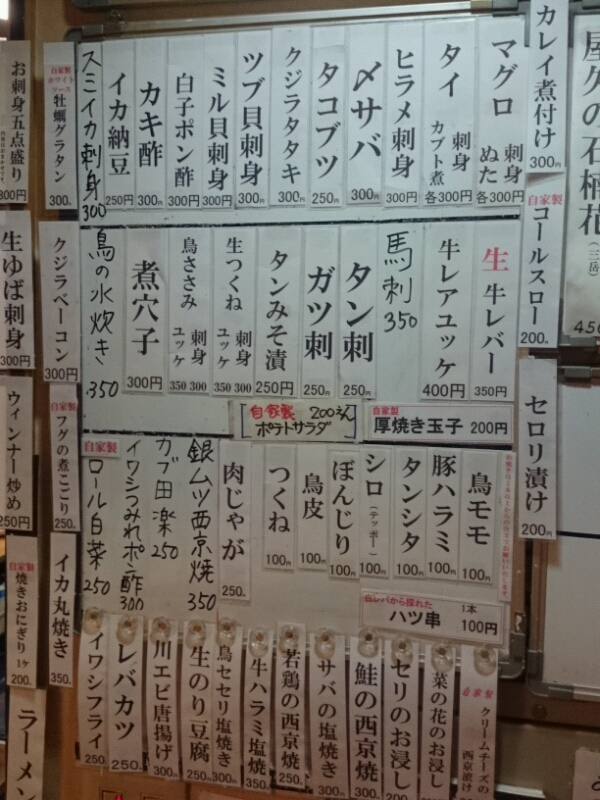 屋久の石楠花
（三岳）
カレイ煮付け 300円
自家製 コールスロー 200円
セロリ漬け 200円
マグロ 刺身 ぬた 各300円
タイ 刺身 カブト煮 各300円
ヒラメ刺身 300円
〆サバ 300円
タコブツ 250円
クジラタタキ 300円
ツブ貝刺身 300円
ミル貝刺身 300円
白子ポン酢 300円
カキ酢 300円
イカ納豆 250円
スミイカ刺身 300
自家製ホワイトソース 牡蠣グラタン 300円
お刺身五点盛り 800円
生牛レバー 350円
牛レアユッケ 400円
馬刺 350
タン刺 250円
ガツ刺 250円
タンみそ漬 250円
生つくね 刺身 ユッケ 300 350
鳥ささみ 刺身 ユッケ 300 350
煮穴子 300円
鳥の水炊き 350
クジラベーコン 300円
生ゆば刺身 300円
自家製 厚焼き玉子 200円
自家製 ポテトサラダ 200
鳥モモ 100円
豚ハラミ 100円
タンシタ 100円
シロ（テッポー） 100円
ぼんじり 100円
鳥皮 100円
つくね 100円
肉じゃが 250円
銀ムツ西京焼 350
カブ田楽 250
イワシつみれポン酢 300
自家製 ロール白菜 250
自家製 フグの煮こごり 250円
ウィンナー炒め 250円
白レバから採れた ハツ串 1本 100円
イカ丸焼き 350円
自家製 焼きおにぎり 1ケ 200円
ラーメン
自家製 クリームチーズの西京漬け
菜の花のお浸し
セリのお浸し
鮭の西京焼 300円
サバの塩焼き 300円
若鶏の西京焼 250円
牛ハラミ塩焼 350円
鳥セセリ塩焼き 300円
生のり豆腐 250円
川エビ唐揚げ 300円
レバカツ 250円
イワシフライ 250